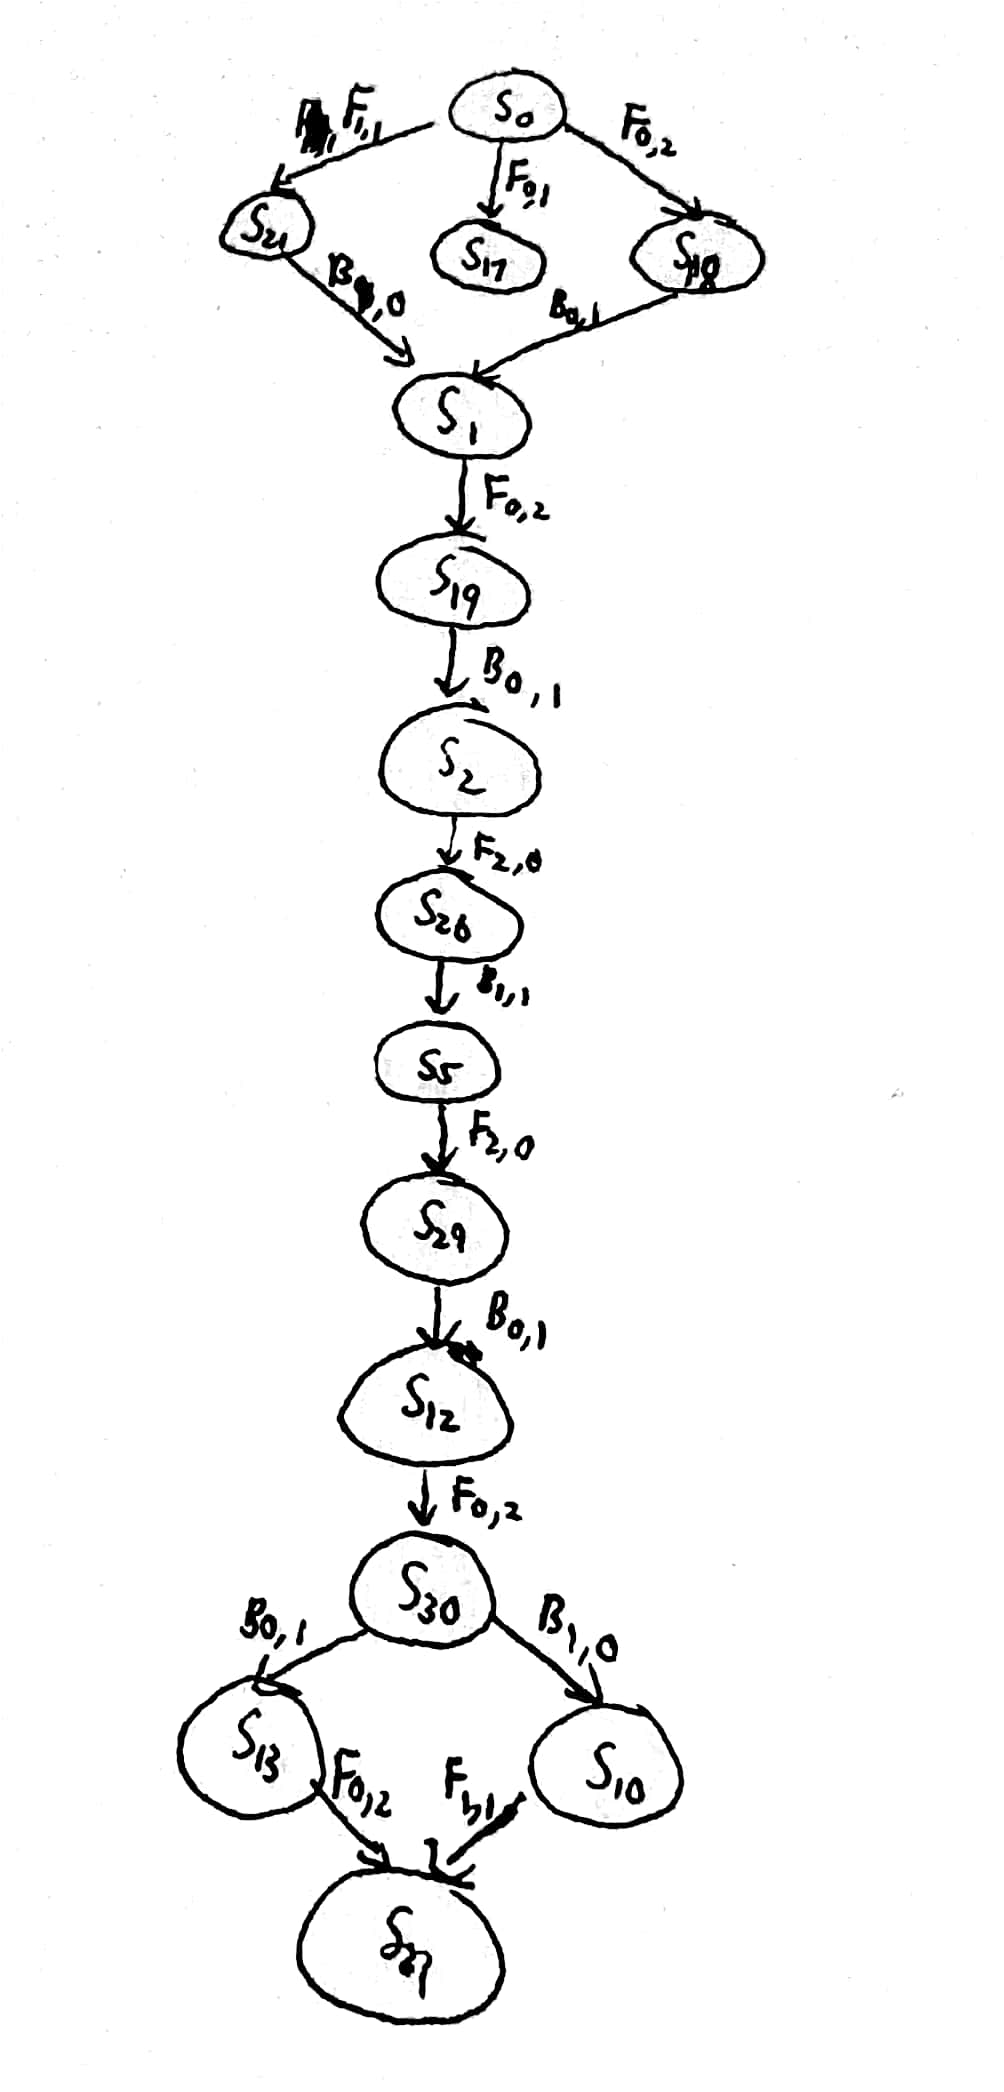 S0
F1,1 F0,1 F0,2
S21 S17 S18
B0,1
S1
F0,2
S19
B0,1
S2
F2,0
S20
B1,1
S5
F2,0
S29
B0,1
S12
F0,2
S30
B0,1 B1,0
S13 S10
F0,2 F1,1